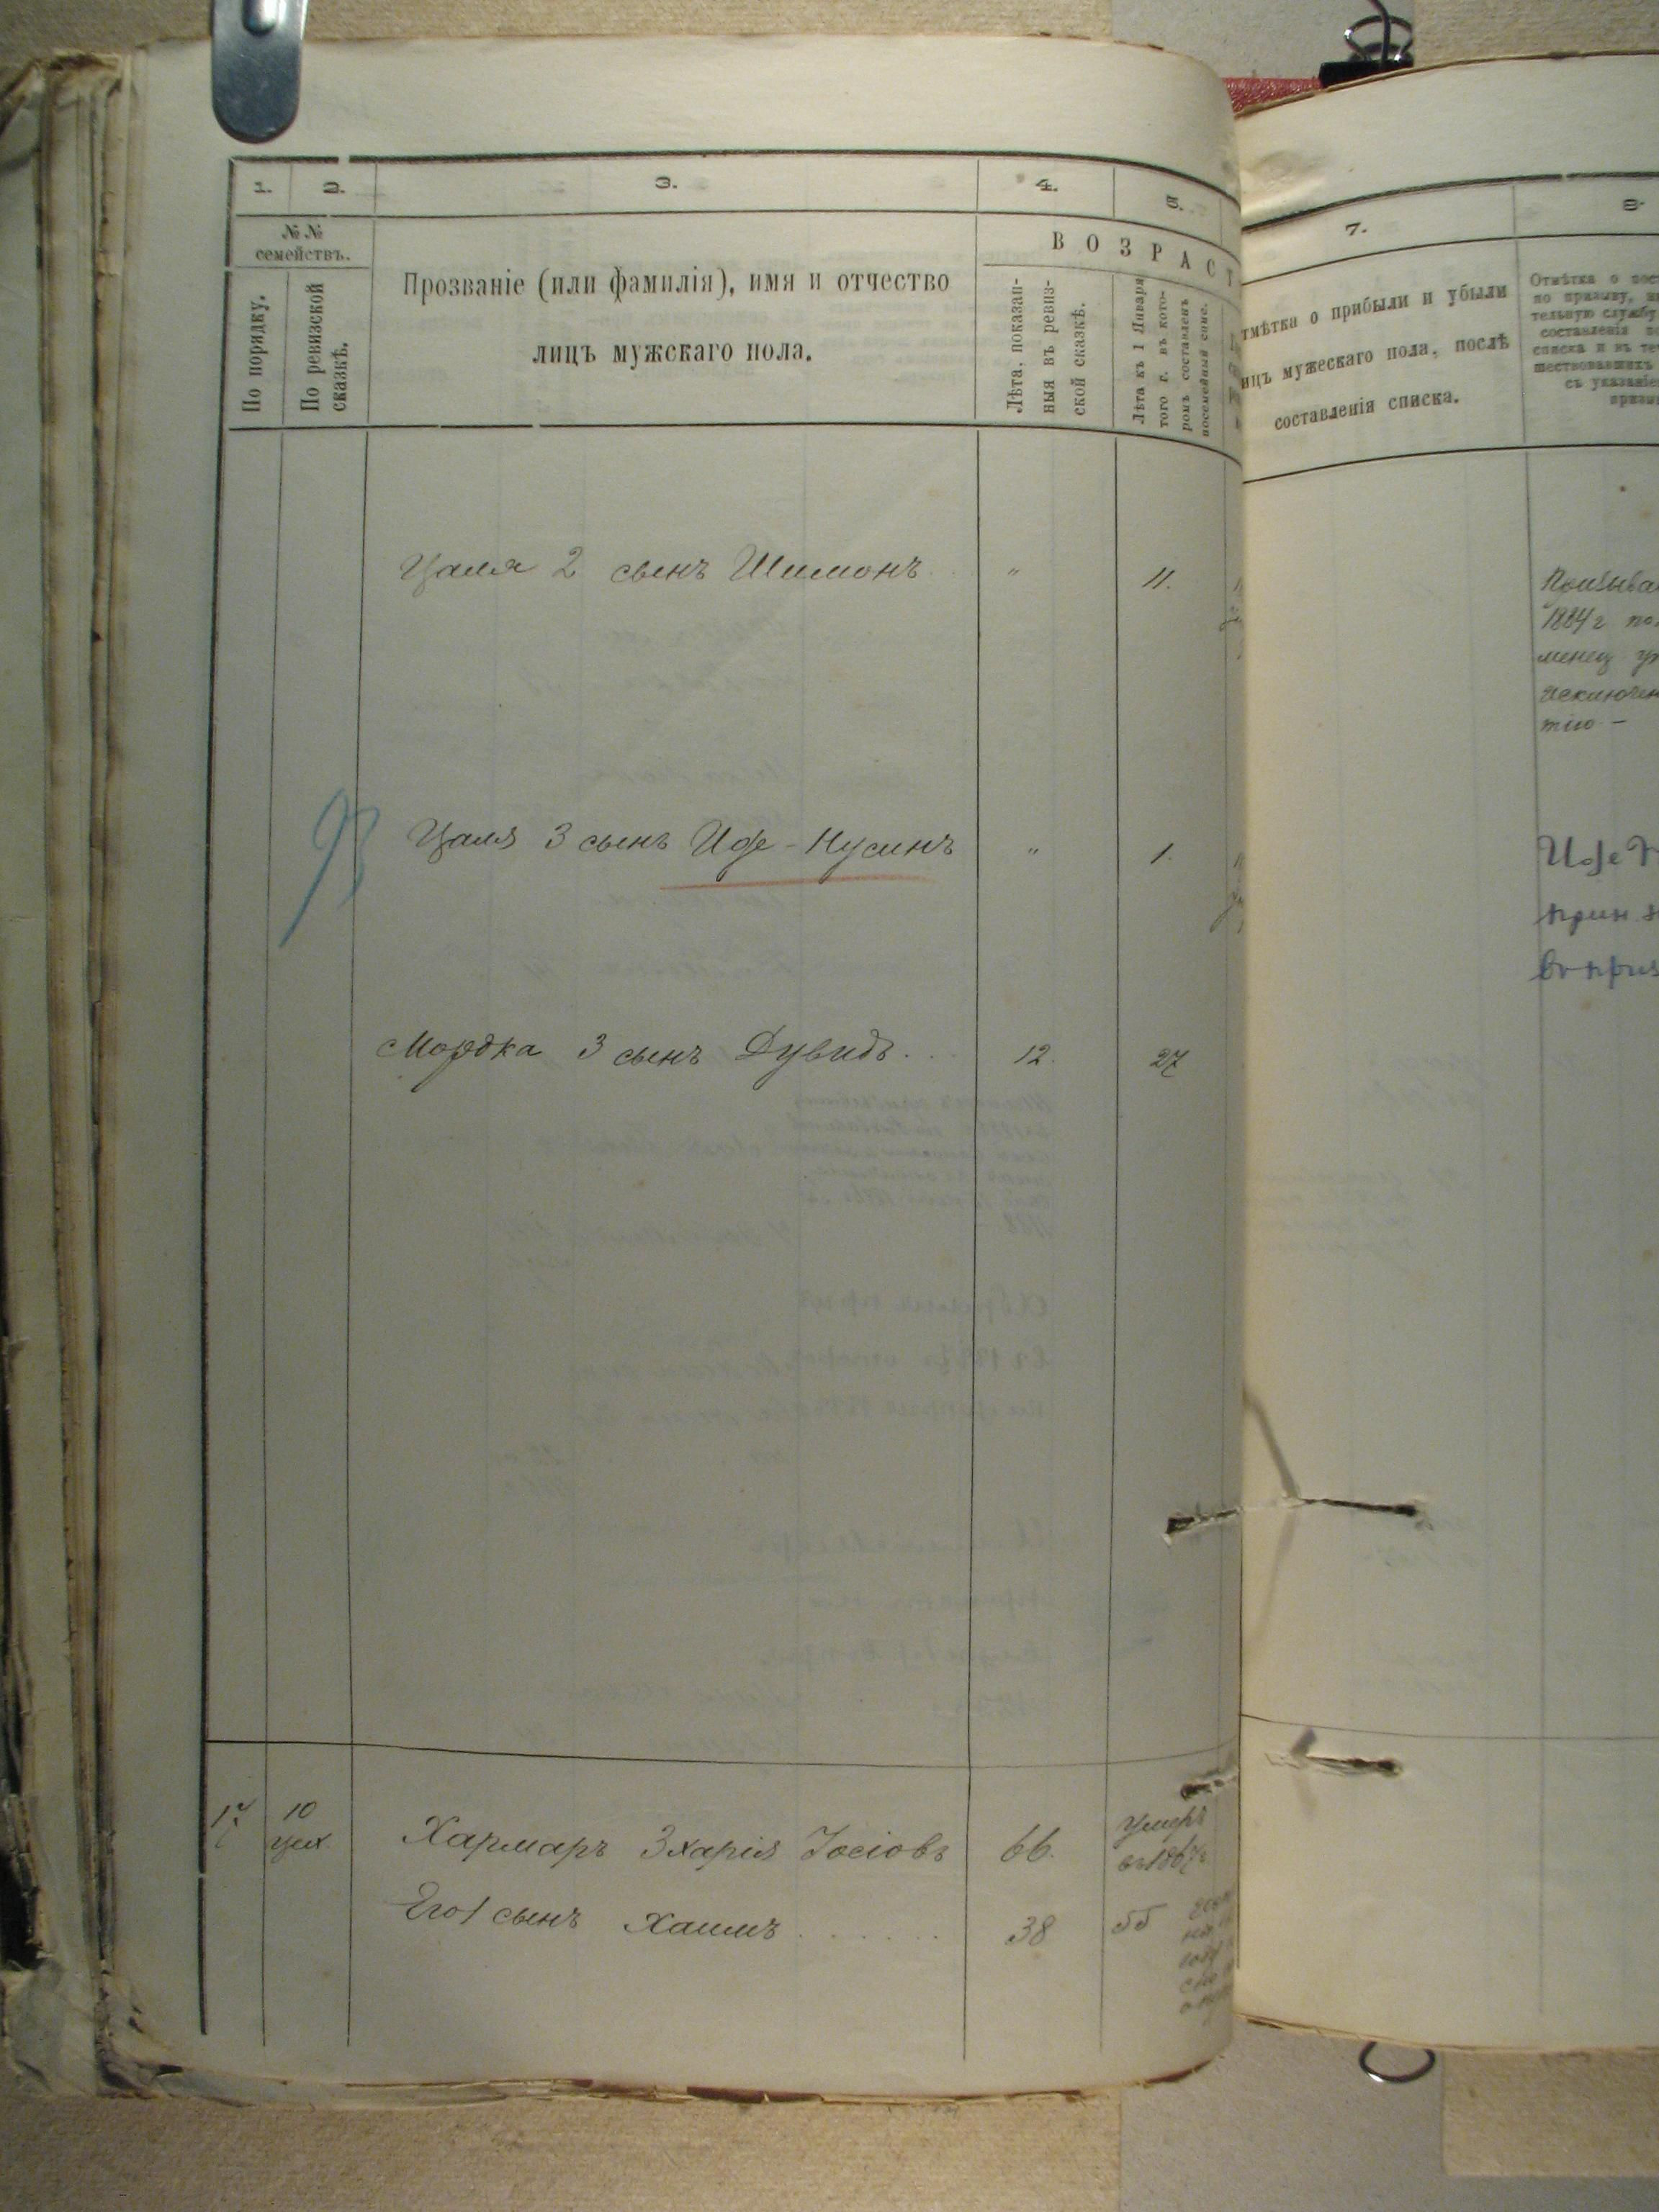 1.
2.
3.
4.
5.
№№
семействъ.
По порядку.
По ревизской
сказкѣ.
Прозваніе (или фамилія), имя и отчество
лицъ мужскаго пола.
ВОЗРАСТ
Лѣта, показан-
ныя въ ревиз-
ской сказкѣ.
Лѣта къ 1 Января
того г. въ кото-
ромъ составленъ
посемейный спис.
Цаля 2 сынъ Шимонъ
"
11.
93
Цаля 3 сынъ Иде-Нусинъ
"
1.
Мордка 3 сынъ Дувидъ
12.
27
17
10
цех
Хармаръ Зхарія Іосіовъ
66.
умеръ
въ 1867г
Его 1 сынъ Хаимъ
38
55
7.
8.
тмѣтка о прибыли и убыли
ицъ мужескаго пола, послѣ
составленія списка.
Отмѣтка о пост
по призыву, и
тельную службу
составленія по
списка и въ те
шествовавшихъ
съ указаніе
призы
Призыва
1884 г по
менец
исключен
тію –
Иде Н
прин
въ приз